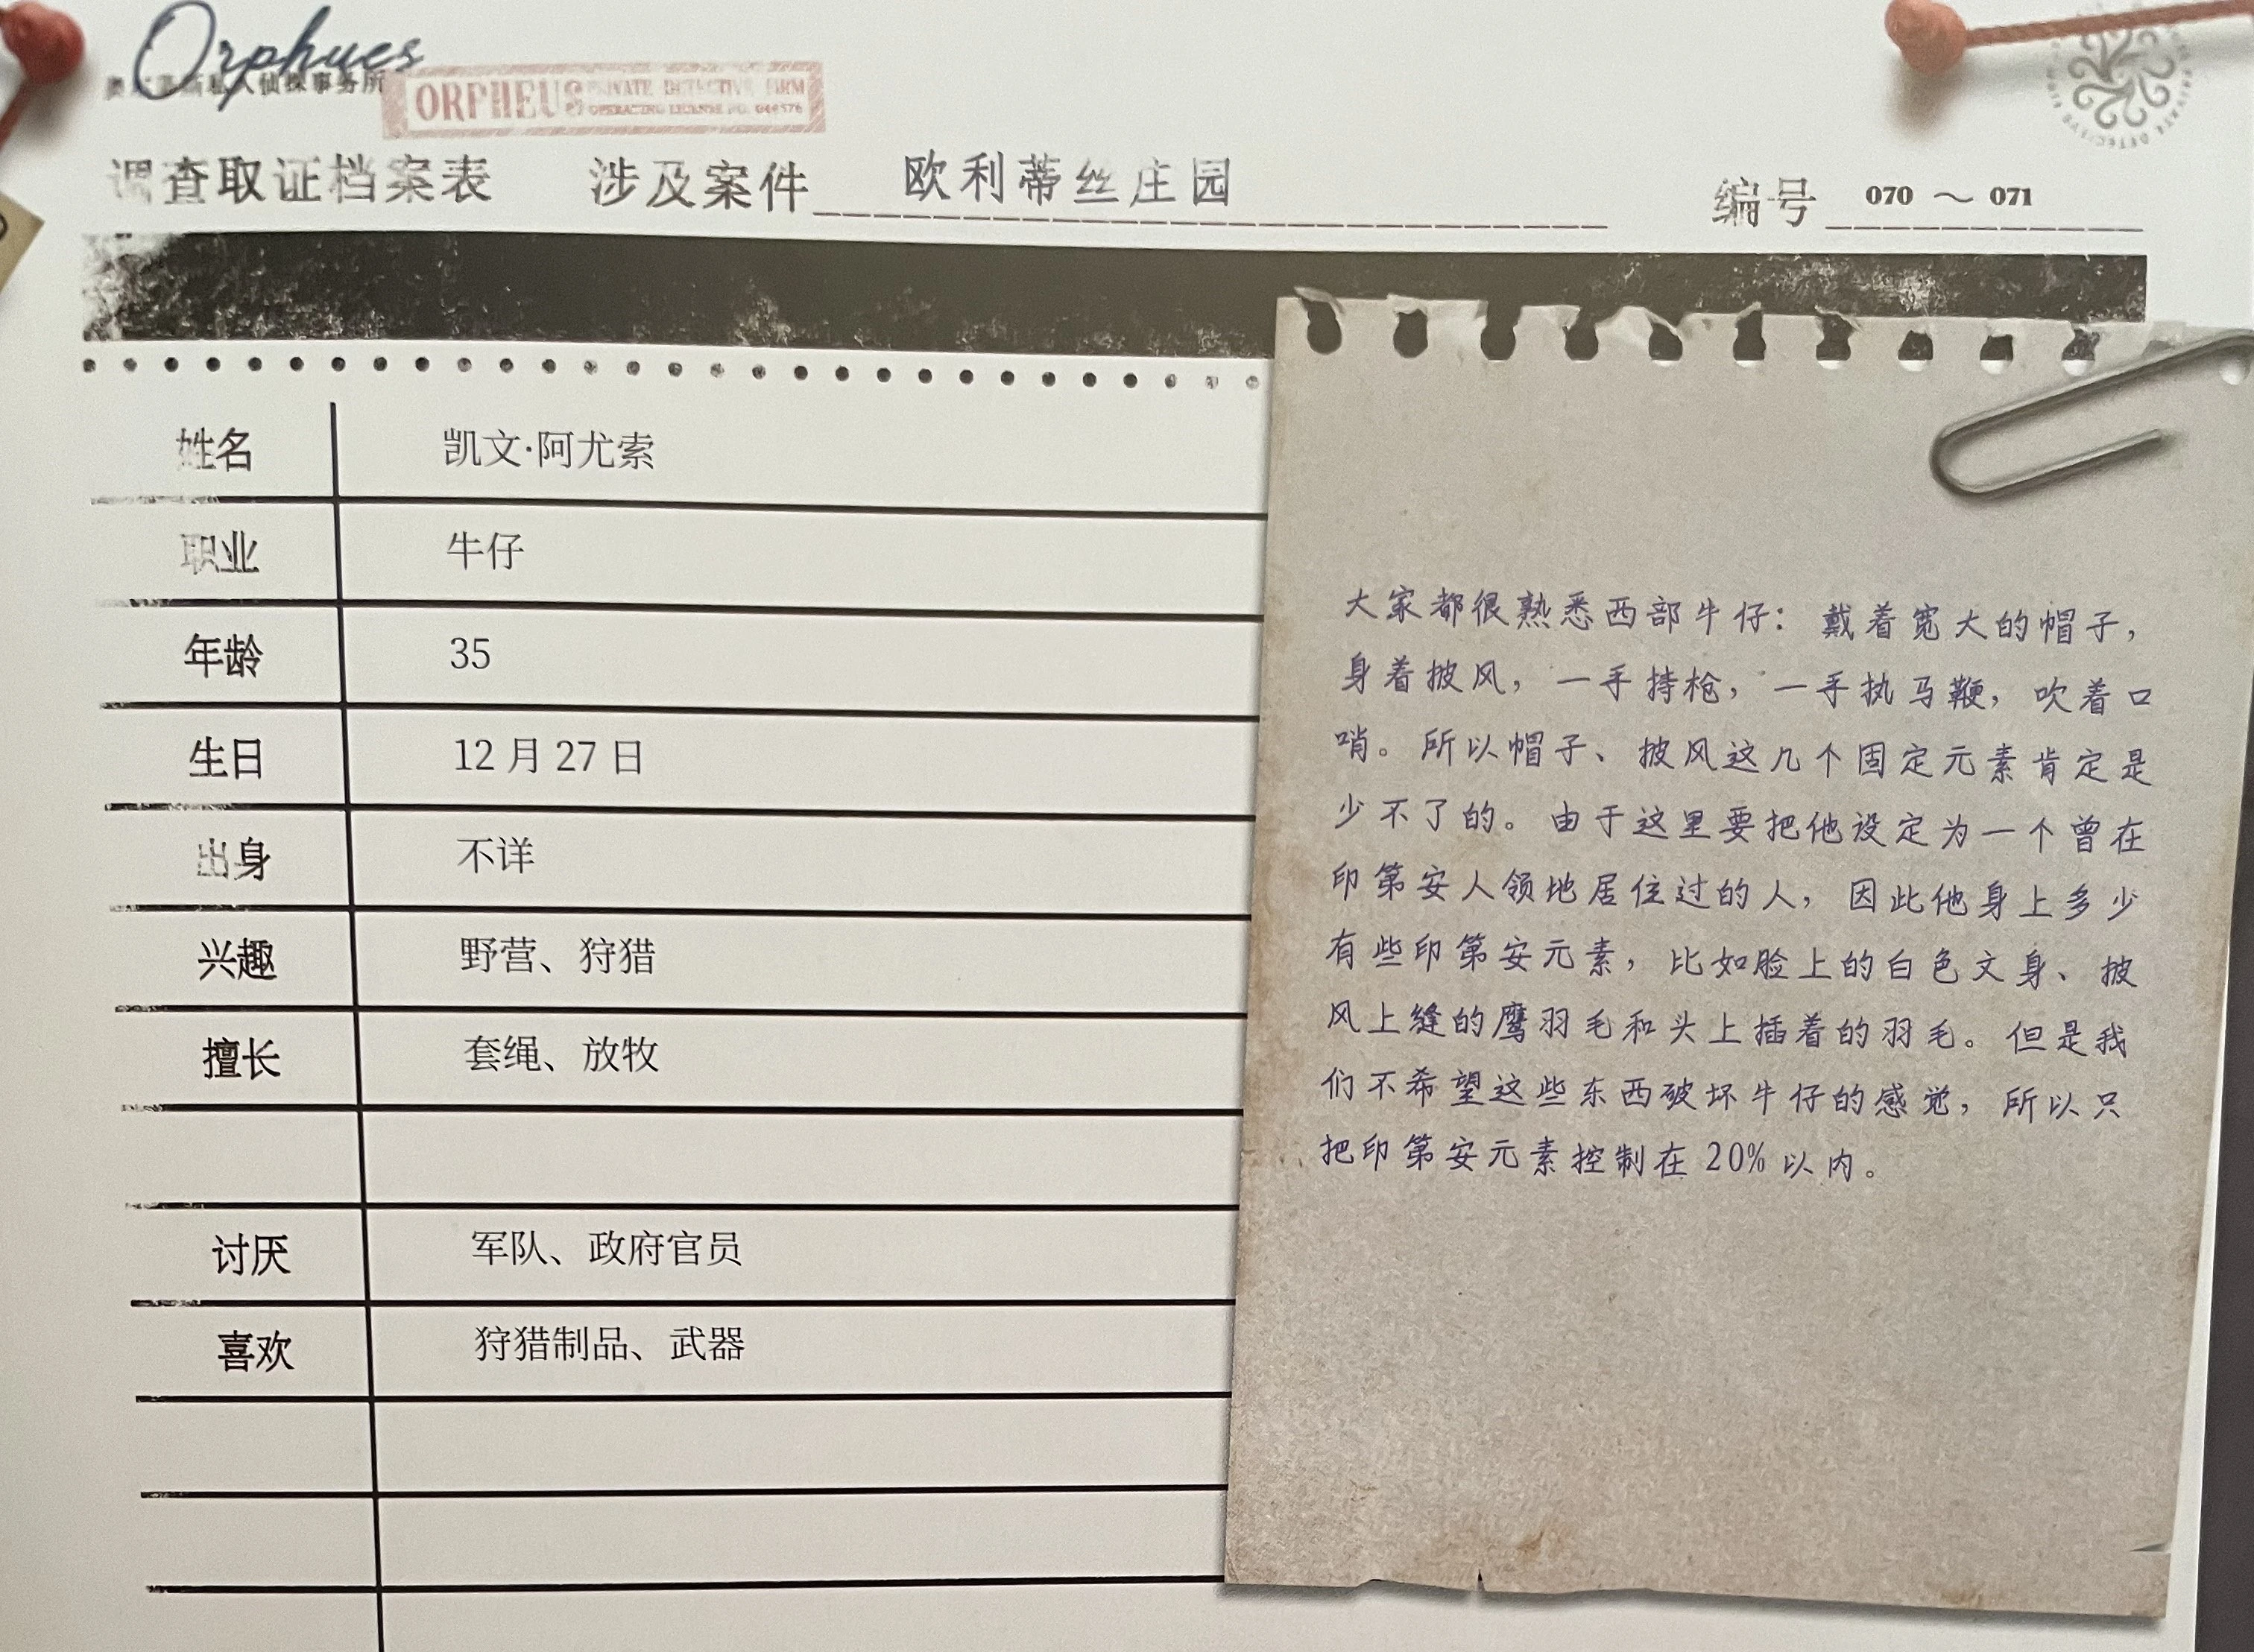 Orphues
私人侦探事务所
ORPHEUS PRIVATE DETECTIVE FIRM
OPERATING LICENSE NO. 044576
调查取证档案表 涉及案件 欧利蒂丝庄园 编号 070 ～ 071
姓名 凯文·阿尤索
职业 牛仔
年龄 35
生日 12 月 27 日
出身 不详
兴趣 野营、狩猎
擅长 套绳、放牧
讨厌 军队、政府官员
喜欢 狩猎制品、武器
大家都很熟悉西部牛仔：戴着宽大的帽子，
身着披风，一手持枪，一手执马鞭，吹着口
哨。所以帽子、披风这几个固定元素肯定是
少不了的。由于这里要把他设定为一个曾在
印第安人领地居住过的人，因此他身上多少
有些印第安元素，比如脸上的白色文身、披
风上缝的鹰羽毛和头上插着的羽毛。但是我
们不希望这些东西破坏牛仔的感觉，所以只
把印第安元素控制在 20% 以内。